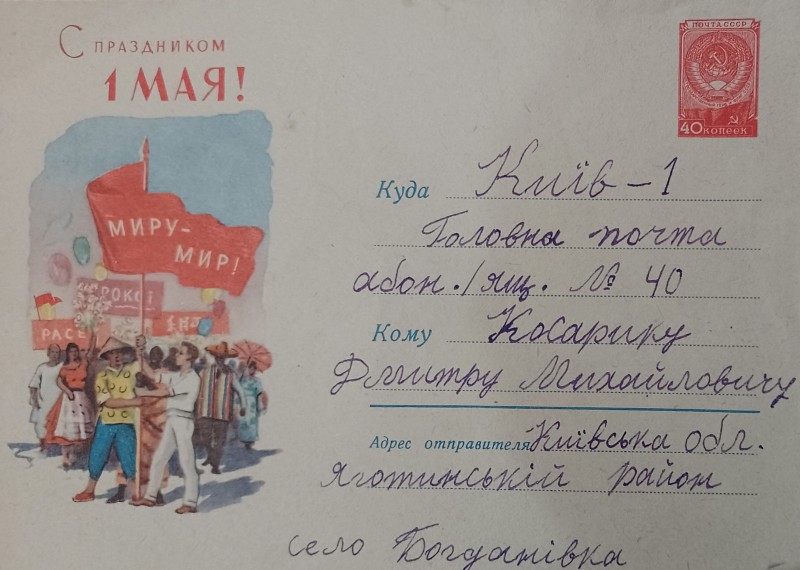 С ПРАЗДНИКОМ
1 МАЯ!
ПОЧТА СССР
40 КОПЕЕК
МИРУ-
МИР!
РОКОІ
PACE
Куда Київ-1
Головна почта
абон./ящ. № 40
Кому Косарику
Дмитру Михайловичу
Адрес отправителя Київська обл.
Яготинській район
село Богданівка